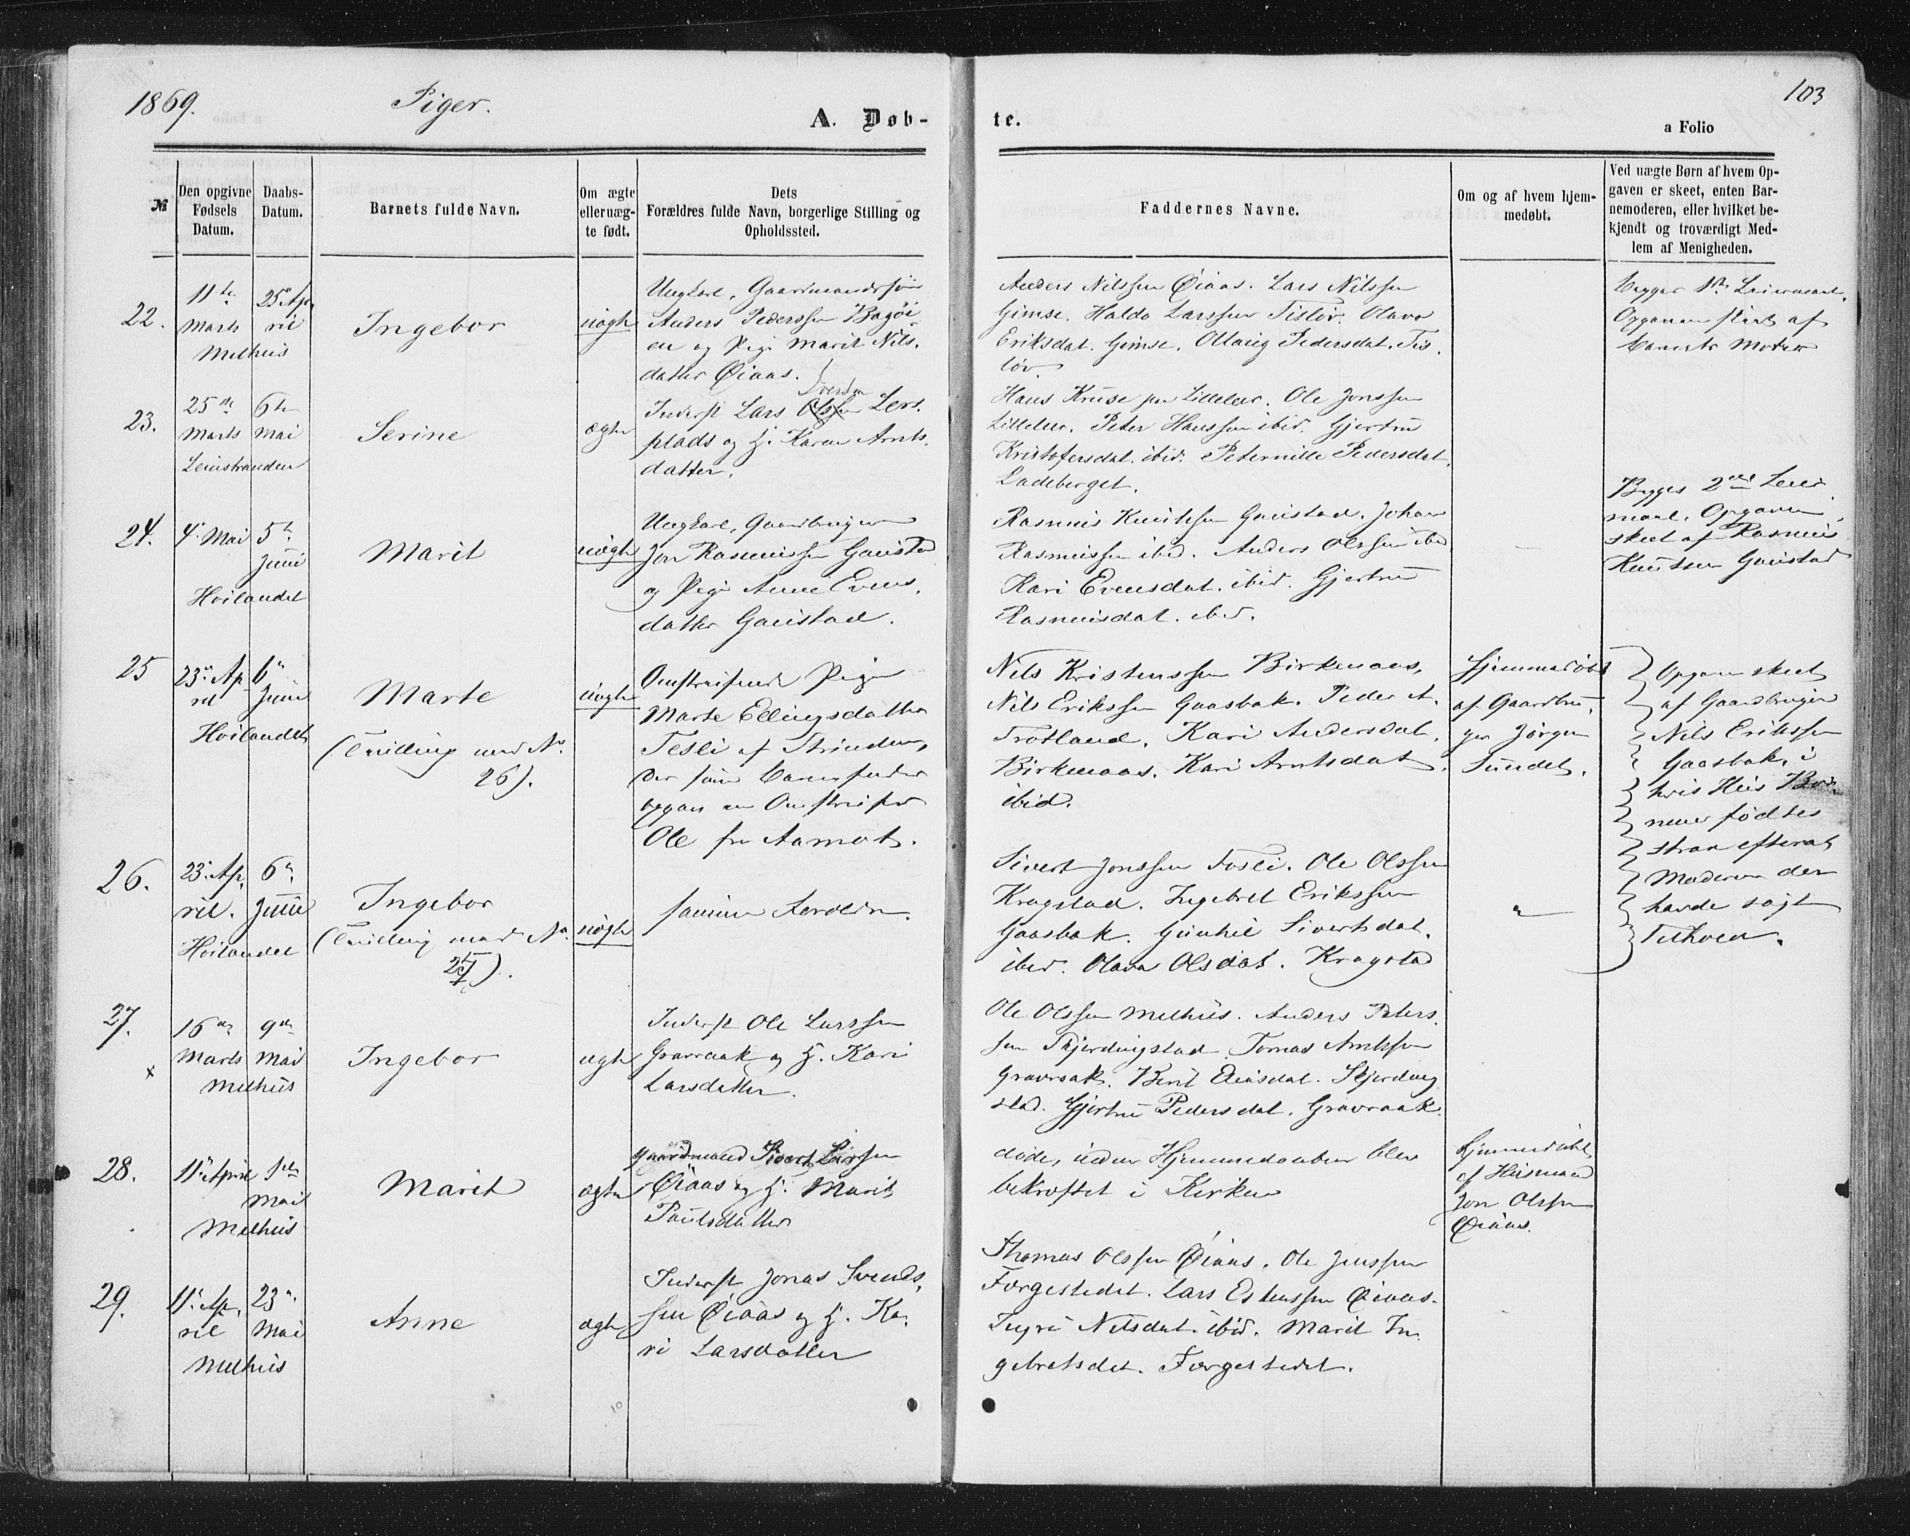 1869. Piger. A. Døb- te. 103
a Folio
№
Den opgivne Fødsels Datum.
Daabs-Datum.
Barnets fulde Navn.
Om ægte eller uæg-te født.
Dets
Forældres fulde Navn, borgerlige Stilling og
Opholdssted.
Faddernes Navne.
Om og af hvem hjem-
medøbt.
Ved uægte Børn af hvem Op-
gaven er skeet, enten Bar-
nemoderen, eller hvilket be-
kjendt og troværdigt Med-
lem af Menigheden.
22.
11te Marts
25de April
Melhus
Ingebor
uægte
Ungkarl, Gaardmandssøn
Anders Pederssen Bagøi
en og Pige Marit Nils,
datter Øiaas.
Anders Nilssen Øiaas. Lars Nilssen
Gimse. Haldo Larssen Tisløv. Olava
Eriksdat. Gimse. Ollaug Pedersdat. Tis,
løv.
Begges 1ste Leiermaal.
Opgaven skeet af
Barnets Moder
23.
25de Marts
6te Mai
Leinstranden
Serine
ægte
Inderst Lars Iversen Lers,
plads og H. Karen Arnts,
datter.
Hans Kruse paa Lilleler. Ole Jonssen
Lilleler. Peter Hanssen ibid. Gjertru
Kristofersdat. ibid. Peternille Pedersdat.
Ladeberget.
24.
4. Mai
5te Juni
Hoilandet
Marit
uægte
Ungkarl, Gaardbruger
Jon Rasmussen Gaustad
og Pige Anne Evens,
datter Gaustad.
Rasmus Knutssen Gaustad. Johan
Rasmussen ibid. Anders Olssen ibid
Kari Evensdat. ibid. Gjertru
Rasmusdat. ibid.
Begges 2det Leier,
maal. Opgaven
skeet af Rasmus
Knutsen Gaustad
25
23de April
6te Juni
Hoilandet
Marte
(Tvilling med No.
26).
uægte
Omstreifende Pige
Marte Ellingsdatter
Tesli af Strinden,
der som Barnefader
opgav en Omstreifer
Ole fra Aamot.
Nils Kristenssen Birkenaas,
Nils Erikssen Gaasbak. Peder A.
Trotland. Kari Andersdat.
Birkenaas. Kari Arntsdat.
ibid.
Hjemmedøbt
af Gaardbru,
ger Jørgen
Sundet.
Opgaven skeet
af Gaardbruger
Nils Erikssen
Gaasbak, i
hvis Huus Bør,
nene fødtes
strax efterat
Moderen der
havde søgt
Tilhold.
26.
23de April.
6te Juni
Hoilandet
Ingebor
(Tvilling med No.
25).
uægte
samme Forældre.
Sivert Jonssen Fosli. Ole Olssen
Kragstad. Ingebret Erikssen
Gaasbak. Gunhil Sivertsdat.
ibid. Olava Olsdat. Kragstad
"
27.
x
16de Marts
9de Mai
Melhus
Ingebor
ægte
Inderst Ole Larssen
Gravraak og H. Kari
Larsdatter.
Ole Olssen Melhus. Anders Peters,
sen Skjerdingstad. Tomas Arntssen
Gravraak. Berit Eriksdat. Skjerding
stad. Gjertru Pedersdat. Gravraak.
28.
11te April
1ste Mai
Melhus
Marit
ægte
Gaardmand Sivert Larssen
Øiaas og H. Marit
Paulsdatter
døde, uden Hjemmedaaben blev
bekræftet i Kirken
Hjemmedøbt
af Huusmand
Jon Olssen
Øiaas.
29.
11te April
23de Mai
Melhus
Anne
ægte
Inderst Jonas Svends,
sen Øiaas og H. Ka,
ri Larsdatter
Thomas Olssen Øiaas. Ole Jenssen
Forgestedet. Lars Estenssen Øiaas.
Ingri Nilsdat. ibid. Marit In,
gebretsdat. Forgestedet.